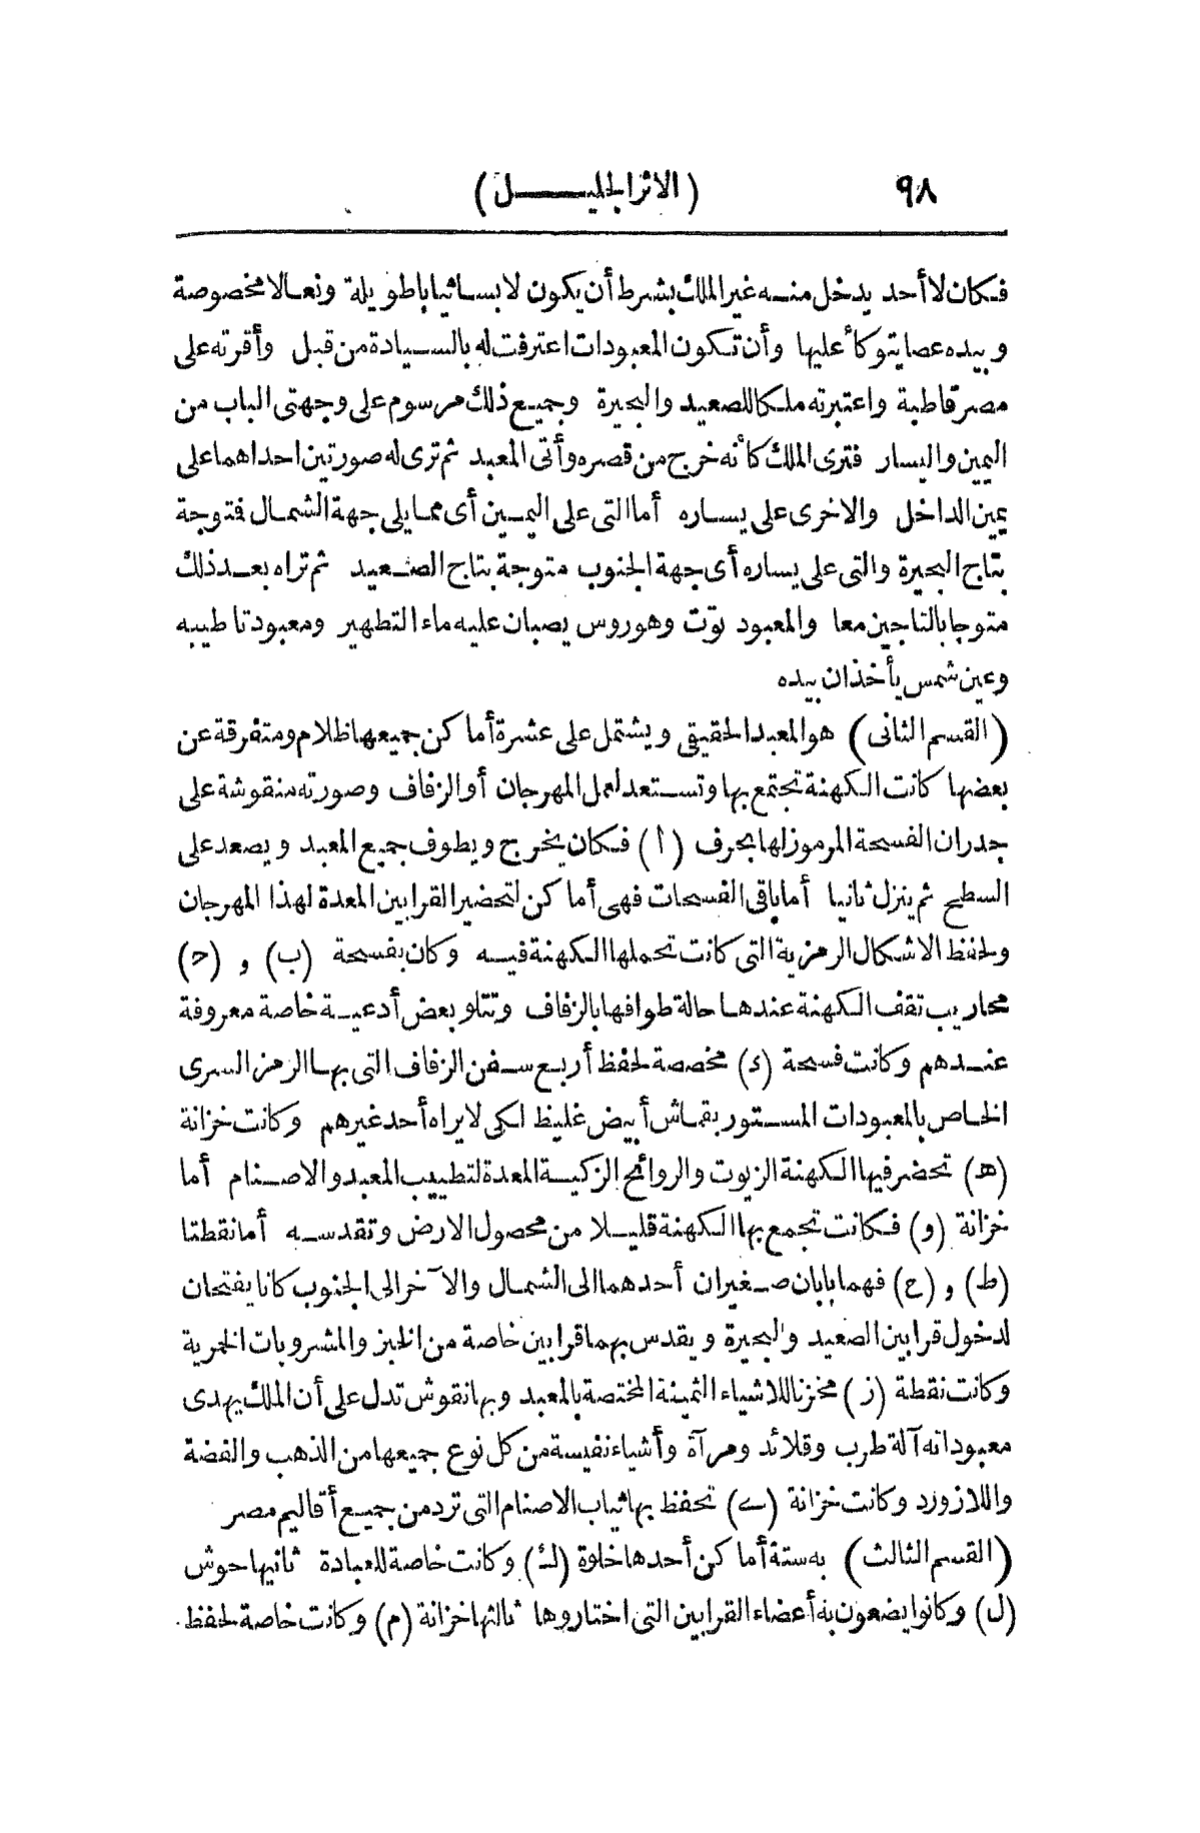 ٩٨ (الاثر الجليل)
فكان لا أحد يدخل منه غير الملك بشرط أن يكون لابسا ثيابا طويلة ونعالا مخصوصة
وبيده عصا يتوكأ عليها وأن تكون المعبودات اعترفت له بالسيادة من قبل وأقرته على
مصر قاطبة واعتبرته ملكا للصعيد والبحيرة وجميع ذلك مرسوم على وجهتى الباب من
اليمين واليسار فترى الملك كأنه خرج من قصره وأتى المعبد ثم ترى له صورتين احداهما على
يمين الداخل والاخرى على يساره أما التى على اليمين أى مما يلى جهة الشمال فتوجة
بتاج البحيرة والتى على يساره أى جهة الجنوب متوجة بتاج الصعيد ثم تراه بعد ذلك
متوجا بالتاجين معا والمعبود توت وهوروس يصبان عليه ماء التطهير ومعبودتا طيبه
وعين شمس يأخذان بيده
(القسم الثانى) هو المعبد الحقيقى ويشتمل على عشرة أماكن جميعها ظلام ومتفرقة عن
بعضها كانت الكهنة تجتمع بها وتستعد لعمل المهرجان أو الزفاف وصورته منقوشة على
جدران الفسحة المرموز لها بحرف (أ) فكان يخرج ويطوف جميع المعبد ويصعد على
السطح ثم ينزل ثانيا أما باقى الفسحات فهى أماكن لتحضير القرابين المعدة لهذا المهرجان
ولحفظ الاشكال الرمزية التى كانت تحملها الكهنة فيه وكان بفسحة (ب) و (ح)
محاريب تقف الكهنة عندها حالة طوافها بالزفاف وتتلو بعض أدعية خاصة معروفة
عندهم وكانت فسحة (د) مخصصة لحفظ أربع سفن الزفاف التى بها الرمز السرى
الخاص بالمعبودات المستور بقماش أبيض غليظ لكى لا يراه أحد غيرهم وكانت خزانة
(هـ) تحضر فيها الكهنة الزيوت والروائح الزكية المعدة لتطييب المعبد والاصنام أما
خزانة (و) فكانت تجمع بها الكهنة قليلا من محصول الارض وتقدسه أما نقطتا
(ط) و (ح) فهما بابان صغيران أحدهما الى الشمال والآخر الى الجنوب كانا يفتحان
لدخول قرابين الصعيد والبحيرة ويقدس بهما قرابين خاصة من الخبز والمشروبات الخمرية
وكانت نقطة (ز) مخزنا للاشياء الثمينة المختصة بالمعبد وبها نقوش تدل على أن الملك يهدى
معبوداته آلة طرب وقلائد ومرآة وأشياء نفيسة من كل نوع جميعها من الذهب والفضة
واللازورد وكانت خزانة (ى) تحفظ بها ثياب الاصنام التى ترد من جميع أقاليم مصر
(القسم الثالث) به ستة أماكن أحدها خلوة (ك) وكانت خاصة للعبادة ثانيها حوش
(ل) وكانوا يضعون به أعضاء القرابين التى اختاروها ثالثها خزانة (م) وكانت خاصة لحفظ